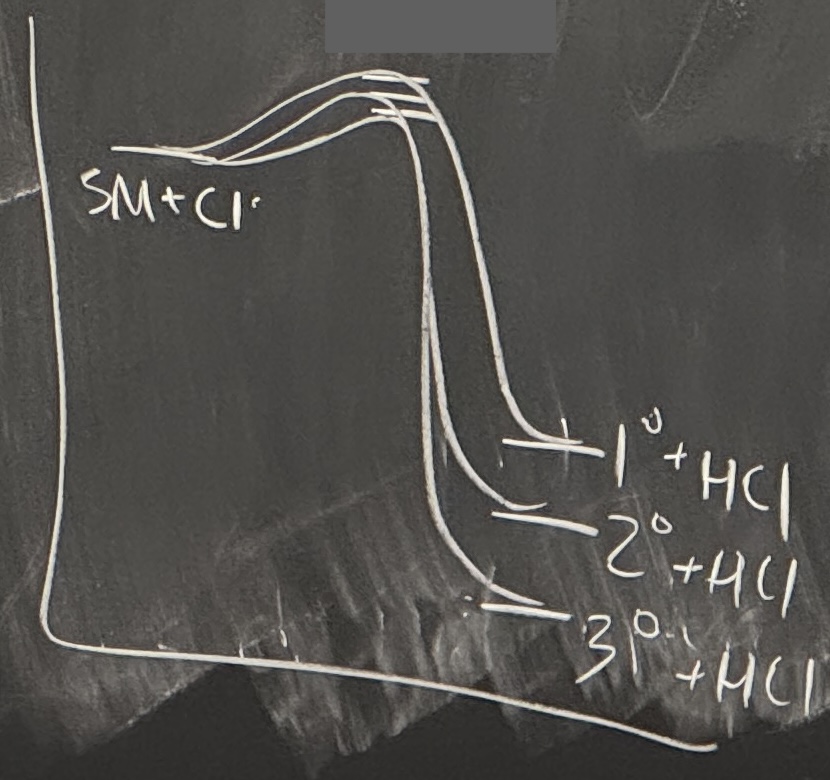 SM + Cl·
1° + HCl
2° + HCl
3° + HCl